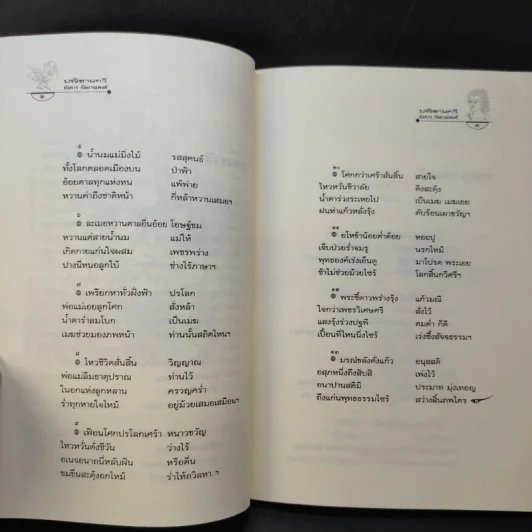 ปณิธานกวี
อังคาร กัลยาณพงศ์
๏ น้ำนมแม่มิ่งไม้ รสสุคนธ์
ทั้งโลกตลอดเมืองบน ป่าฟ้า
อ้อยตาลทุกแห่งหน แพ้พ่าย
หวานคำถึงชาติหน้า กี่หล้าหวานเสมอฯ
๏ ละเมอหวานตาลยื่นอ้อย โอษฐ์ชม
หวานแค่สายน้ำนม แม่ให้
เกิดกายแก่นใจผสม เพชรพร่าง
ปางนี่หนอลูกไบ้ ช่างไร้ภาษาฯ
๏ เพรียกหาทั่วฝั่งฟ้า ปรโลก
พ่อแม่เอยลูกโศก สั่งหล้า
น้ำตาร่ำลมโบก เป็นเมฆ
เมฆช่วยมองภพหน้า ท่านนั้นสถิตไหนฯ
๏ ไหวชีวิตสั่นสิ้น วิญญาณ
พ่อแม่ลืมธาตุปราณ ท่านไว้
ในอกแห่งลูกหลาน ครวญคร่ำ
ร่ำทุกหายใจไหม้ อยู่ม้วยเสมอเสมือนฯ
๏ เฟือนโศกปรโลกเศร้า หนาวขวัญ
ไหวหวั่นดั่งชีวัน ว่างไร้
อเนจอนาถนี่หลับฝัน หรือตื่น
ขมขื่นสะดุ้งอกไหม้ ร่ำไห้ถวิลหา ฯ
ปณิธานกวี
อังคาร กัลยาณพงศ์
๏ โศกกว่าเศร้าสั่นสิ้น สายใจ
ไหวหวั่นชีวาลัย ดิ่งสะดุ้ง
น้ำตาร่วงระเหยไป เป็นเมฆ เมฆเอย
ฝนห่าแก้วหลั่งรุ้ง ดับร้อนเผาขวัญฯ
๏ อโหข้าน้อยต่ำต้อย หอยปู
เจ็บป่วยร่ำจมรู นรกไหม้
พุทธองค์เร่งเอ็นดู มาโปรด พระเอย
ข้าไม่ช่วยม้วยไซร้ โลกสิ้นกวีศรีฯ
๏ พระขี้ดาวพร่างรุ้ง แก้วมณี
ใจกว่าเพชรวิเศษศรี สั่งไว้
แสงรุ้งร่วงปฐพี ดมค่ำ ก็ดี
เปื้อนที่ไหนนิ่งไซร้ เร่งซึ้งสัจจธรรมฯ
๏ มรณ์ขลังดั่งแก้ว อนุสสติ
อสุภหนึ่งถึงสิบสิ เพ่งไว้
อนาปานสติมิ ประมาท มุ่งเทอญ
ถึงแก่นพุทธธรรมไซร้ สว่างสิ้นภพไตร